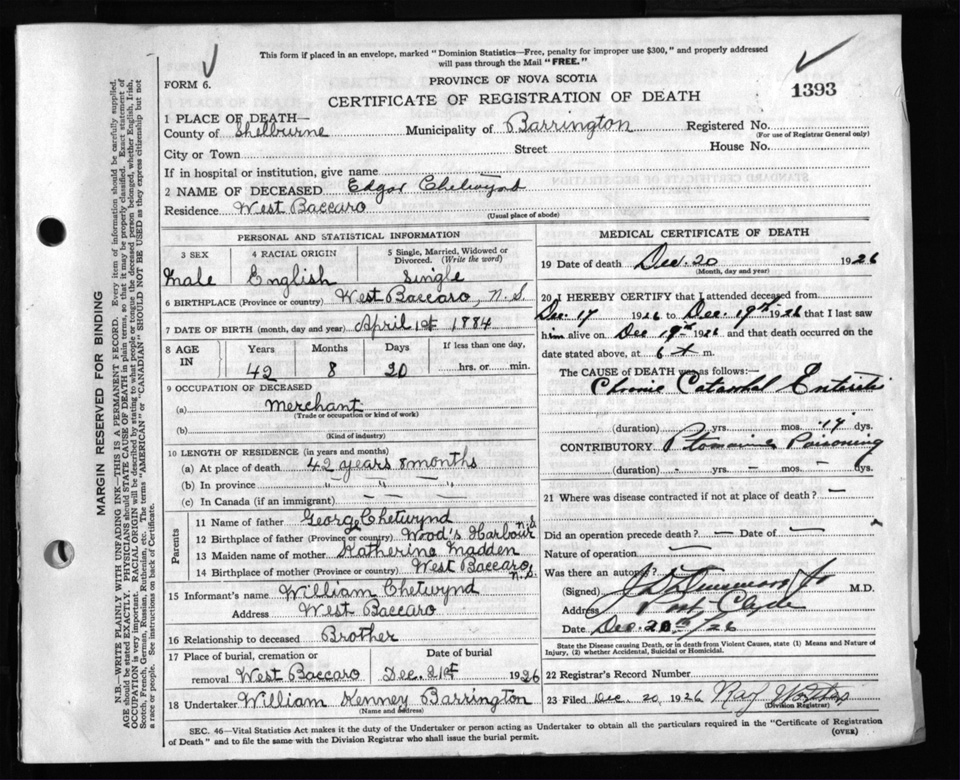 This form if placed in an envelope, marked "Dominion Statistics—Free, penalty for improper use $300," and properly addressed
will pass through the Mail "FREE."
FORM 6.
PROVINCE OF NOVA SCOTIA
1393
CERTIFICATE OF REGISTRATION OF DEATH
1 PLACE OF DEATH—
County of Shelburne Municipality of Barrington Registered No.
(For use of Registrar General only)
City or Town Street House No.
If in hospital or institution, give name —
2 NAME OF DECEASED Edgar Chetwynd
Residence West Baccaro
(Usual place of abode)
PERSONAL AND STATISTICAL INFORMATION
3 SEX 4 RACIAL ORIGIN 5 Single, Married, Widowed or Divorced. (Write the word)
Male English Single
6 BIRTHPLACE (Province or country) West Baccaro, N.S.
7 DATE OF BIRTH (month, day and year) April 1st 1884
8 AGE IN Years Months Days If less than one day,
42 8 20 hrs. or min.
9 OCCUPATION OF DECEASED
(a) Merchant
(Trade or occupation or kind of work)
(b)
(Kind of industry)
10 LENGTH OF RESIDENCE (in years and months)
(a) At place of death 42 years 8 months
(b) In province " " "
(c) In Canada (if an immigrant) — — —
Parents
11 Name of father George Chetwynd
12 Birthplace of father (Province or country) Wood's Harbour N.S.
13 Maiden name of mother Katherine Madden
14 Birthplace of mother (Province or Country) West Baccaro N.S.
15 Informant's name William Chetwynd
Address West Baccaro
16 Relationship to deceased Brother
17 Place of burial, cremation or removal West Baccaro Date of burial Dec. 21st 1926
18 Undertaker William Kenney Barrington
(Name and address)
MEDICAL CERTIFICATE OF DEATH
19 Date of death Dec. 20 1926
(Month, day and year)
20 I HEREBY CERTIFY that I attended deceased from
Dec. 17 1926 to Dec. 19th 1926 that I last saw
him alive on Dec 19th 1926 and that death occurred on
date stated above, at 6 m.
The CAUSE OF DEATH was as follows:—
Chronic Catarrhal Enteritis
(duration) yrs. mos. 17 dys.
CONTRIBUTORY Ptomaine Poisoning
(duration) - yrs. — mos. — dys.
21 Where was disease contracted if not at place of death? —
Did an operation precede death? — Date of —
Nature of operation —
Was there an autopsy?
(Signed) M.D.
Address Port Clyde
Date Dec. 20th/26
State the Disease causing Death, or in death from Violent Causes, state (1) Means and Nature of
Injury, (2) whether Accidental, Suicidal or Homicidal.
22 Registrar's Record Number
23 Filed Dec 20, 1926
(Division Registrar)
SEC. 46—Vital Statistics Act makes it the duty of the Undertaker or person acting as Undertaker to obtain all the particulars required in the "Certificate of Registration
of Death" and to file the same with the Division Registrar who shall issue the burial permit. (OVER)
MARGIN RESERVED FOR BINDING
N.B.—WRITE PLAINLY WITH UNFADING INK—THIS IS A PERMANENT RECORD. Every item of information should be carefully supplied.
AGE should be stated EXACTLY. PHYSICIANS should STATE CAUSE OF DEATH in plain terms, so that it may be properly classified. Exact statement of
OCCUPATION is very important. RACIAL ORIGIN will be described by stating to what people or tongue the deceased person belonged, whether English, Irish,
Scotch, French, German, Russian, Ruthenian, etc. The terms "AMERICAN" or "CANADIAN" SHOULD NOT BE USED as they express citizenship but not
a race or people. See instructions on back of Certificate.